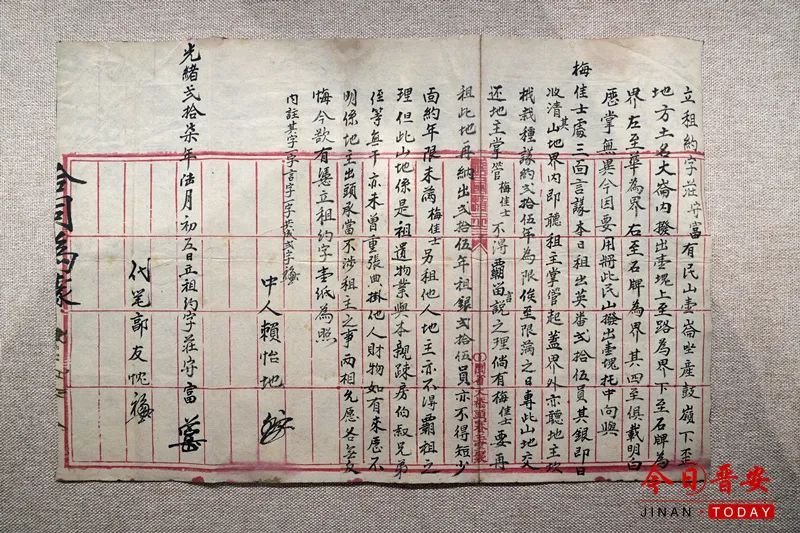 立租約字莊守富有民山壹崙坐産鼓嶺下歪
地方土名大崙内撥出壹塊上至路為界下至石牌為
界左至華為界右至石牌為界其四至俱載明白
歷掌無異今因要用將此民山撥出壹塊托中向與
梅佳士處三面言議本日租出英番弍拾伍員其銀即日
收清其山地界内即聽租主掌管起蓋界外亦聽地主攻
機栽種議約弍拾伍年為限俟至限滿之日專此山地交
還地主掌管梅佳士不得覇留言説之理倘有梅佳士要再
租此地再納出弍拾伍年租銀弍拾伍員亦不得短少
面約年限未滿梅佳士另租他人地主亦不得覇租之
理但此山地係是祖遺物業與本親疎房伯叔兄弟
侄等無干亦未曾重張典掛他人財物如有来歷不
明係地主出頭承當不涉租主之事両相允愿各無反
悔今欲有憑立租約字壹紙為照
内註其字一字言字一字共弍字
中人賴怡地
光緒弍拾柒年陆月初五日立租約字莊守富
代笔郭友忱
合同為
今日晋安
JINAN TODAY